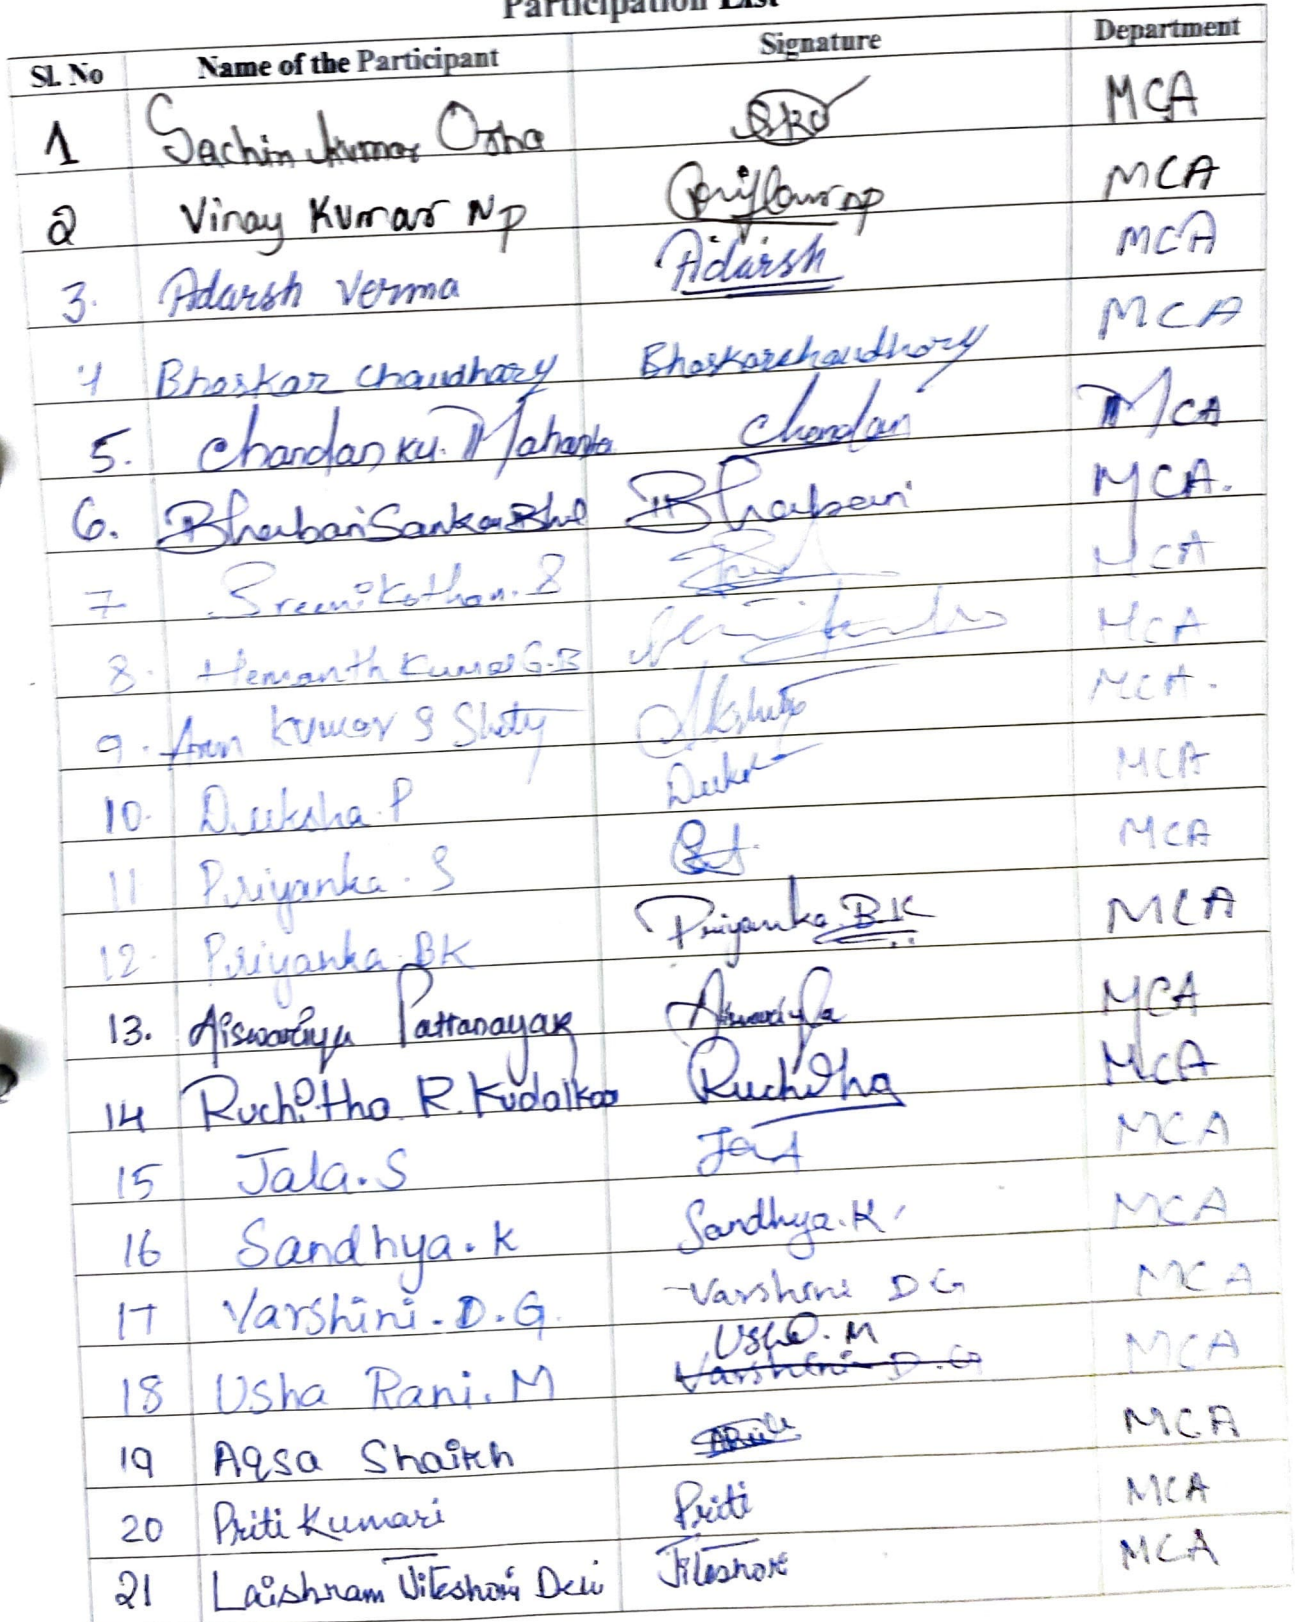 Participation List
Sl. No Name of the Participant Signature Department
1 Sachin Kumar Ojha SKO MCA
2 Vinay Kumar NP MCA
3. Adarsh Verma Adarsh MCA
4 Bhaskar Chaudhary Bhaskarchaudhary MCA
5. Chandan Ku. Mahanta Chandan MCA
6. Bhabani Sankar Bhul Bhabani MCA.
7 Sreenikethan. S MCA
8. Hemanth Kumar G.B MCA
9. Arun Kumar S Shetty MCA.
10. Deeksha. P MCA
11 Priyanka. S MCA
12. Priyanka. BK Priyanka. BK MCA
13. Aiswariya Pattanayak Aiswariya MCA
14 Ruchitha R. Kudalkar Ruchitha MCA
15 Jala. S MCA
16 Sandhya. K Sandhya. K MCA
17 Varshini. D. G. Varshini D G MCA
18 Usha Rani. M Usha. M Varshini D. G MCA
19 Aqsa Shaikh MCA
20 Priti Kumari Priti MCA
21 Laishram Jiteshori Devi Jiteshori MCA